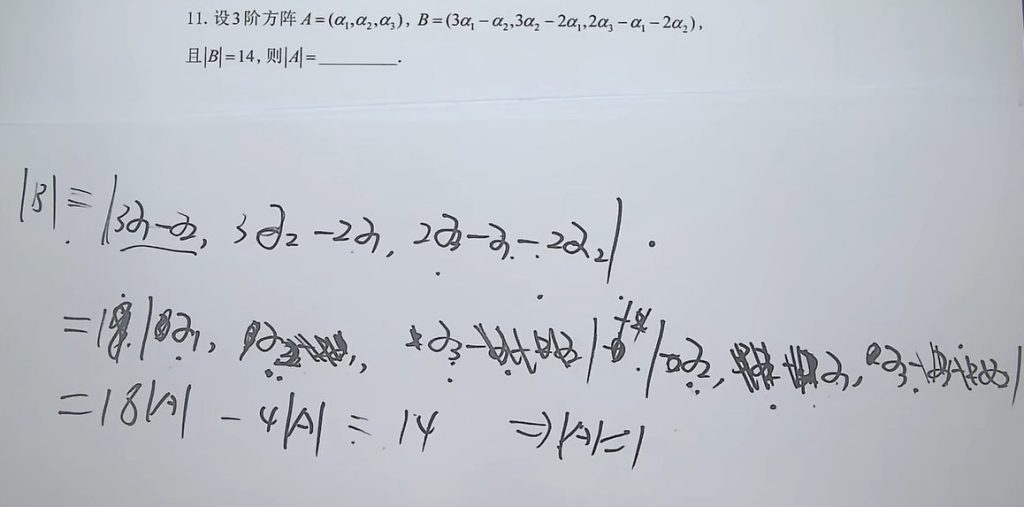 11. 设3阶方阵A=(α₁,α₂,α₃), B=(3α₁-α₂,3α₂-2α₁,2α₃-α₁-2α₂),
且|B|=14, 则|A|=________.
|B| = |3α₁-α₂, 3α₂-2α₁, 2α₃-α₁-2α₂|
=18|α₁, α₂, α₃| -4|α₂, α₁, α₃|
=18|A| - 4|A| = 14 ⇒|A|=1